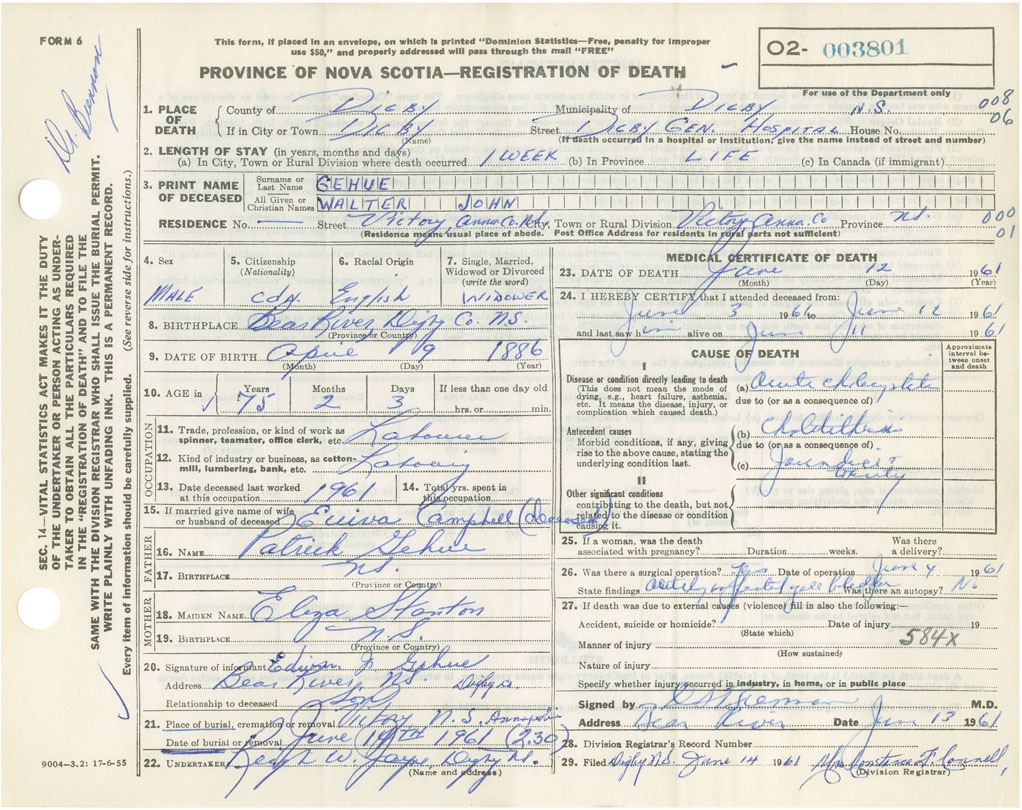 FORM 6
This form, if placed in an envelope, on which is printed "Dominion Statistics—Free, penalty for improper
use $50," and properly addressed will pass through the mail "FREE"
PROVINCE OF NOVA SCOTIA—REGISTRATION OF DEATH
O2- 003801
For use of the Department only
008
06
1. PLACE OF DEATH
County of DIGBY Municipality of DIGBY N.S.
If in City or Town DIGBY Street DIGBY GEN. HOSPITAL House No.
(Name) (If death occurred in a hospital or institution, give the name instead of street and number)
2. LENGTH OF STAY (in years, months and days)
(a) In City, Town or Rural Division where death occurred 1 WEEK (b) In Province LIFE (c) In Canada (if immigrant)
3. PRINT NAME OF DECEASED
Surname or Last Name GEHUE
All Given or Christian Names WALTER JOHN
RESIDENCE No. — Street Victory Anna. Co. N.S. City, Town or Rural Division Victory Anna. Co Province N.S.
000
01
(Residence means usual place of abode. Post Office Address for residents in rural parts not sufficient)
4. Sex MALE
5. Citizenship (Nationality) CdN.
6. Racial Origin English
7. Single, Married, Widowed or Divorced (write the word) WIDOWER
8. BIRTHPLACE Bear River, Digby Co. N.S.
(Province or Country)
9. DATE OF BIRTH April 9 1886
(Month) (Day) (Year)
10. AGE in Years 75 Months 2 Days 3 If less than one day old hrs. or min.
OCCUPATION
11. Trade, profession, or kind of work as spinner, teamster, office clerk, etc. Labourer
12. Kind of industry or business, as cotton-mill, lumbering, bank, etc.
13. Date deceased last worked at this occupation 1961
14. Total yrs. spent in this occupation
15. If married give name of wife or husband of deceased Campbell (Deceased)
FATHER
16. NAME Patrick Gehue
17. BIRTHPLACE N.S.
(Province or Country)
MOTHER
18. MAIDEN NAME Eliza Stanton
19. BIRTHPLACE N.S.
(Province or Country)
20. Signature of informant Edison J. Gehue
Address Bear River, N.S. Digby Co.
Relationship to deceased Son
21. Place of burial, cremation or removal Victory N.S. Annapolis
Date of burial or removal June 14TH 1961 (2.30)
22. UNDERTAKER Ralph W. Jayne, Digby N.S.
(Name and address)
9004-3.2: 17-6-55
MEDICAL CERTIFICATE OF DEATH
23. DATE OF DEATH June 12 1961
(Month) (Day) (Year)
24. I HEREBY CERTIFY that I attended deceased from:
June 3 1961 to June 12 1961
and last saw him alive on June 11 1961
CAUSE OF DEATH
Approximate interval between onset and death
I
Disease or condition directly leading to death
(This does not mean the mode of dying, e.g., heart failure, asthenia, etc. It means the disease, injury, or complication which caused death.)
(a) Acute cholecystitis
due to (or as a consequence of)
Antecedent causes
Morbid conditions, if any, giving rise to the above cause, stating the underlying condition last.
(b) Cholelithiasis
due to (or as a consequence of)
(c) Jaundice + Obesity
II
Other significant conditions
contributing to the death, but not related to the disease or condition causing it.
25. If a woman, was the death associated with pregnancy? Duration weeks. Was there a delivery?
26. Was there a surgical operation? Yes Date of operation June 4 1961
State findings acutely infected gall bladder Was there an autopsy? No
27. If death was due to external causes (violence) fill in also the following:—
Accident, suicide or homicide? Date of injury 19
(State which)
584X
Manner of injury
(How sustained)
Nature of injury
Specify whether injury occurred in industry, in home, or in public place
Signed by M.D.
Address Bear River Date June 13 1961
28. Division Registrar's Record Number
29. Filed Digby N.S. June 14 1961 Mrs Constance F. Connell,
(Division Registrar)
SEC. 14—VITAL STATISTICS ACT MAKES IT THE DUTY
OF THE UNDERTAKER OR PERSON ACTING AS UNDER-
TAKER TO OBTAIN ALL THE PARTICULARS REQUIRED
IN THE "REGISTRATION OF DEATH" AND TO FILE THE
SAME WITH THE DIVISION REGISTRAR WHO SHALL ISSUE THE BURIAL PERMIT.
WRITE PLAINLY WITH UNFADING INK. THIS IS A PERMANENT RECORD.
Every item of information should be carefully supplied. (See reverse side for instructions.)